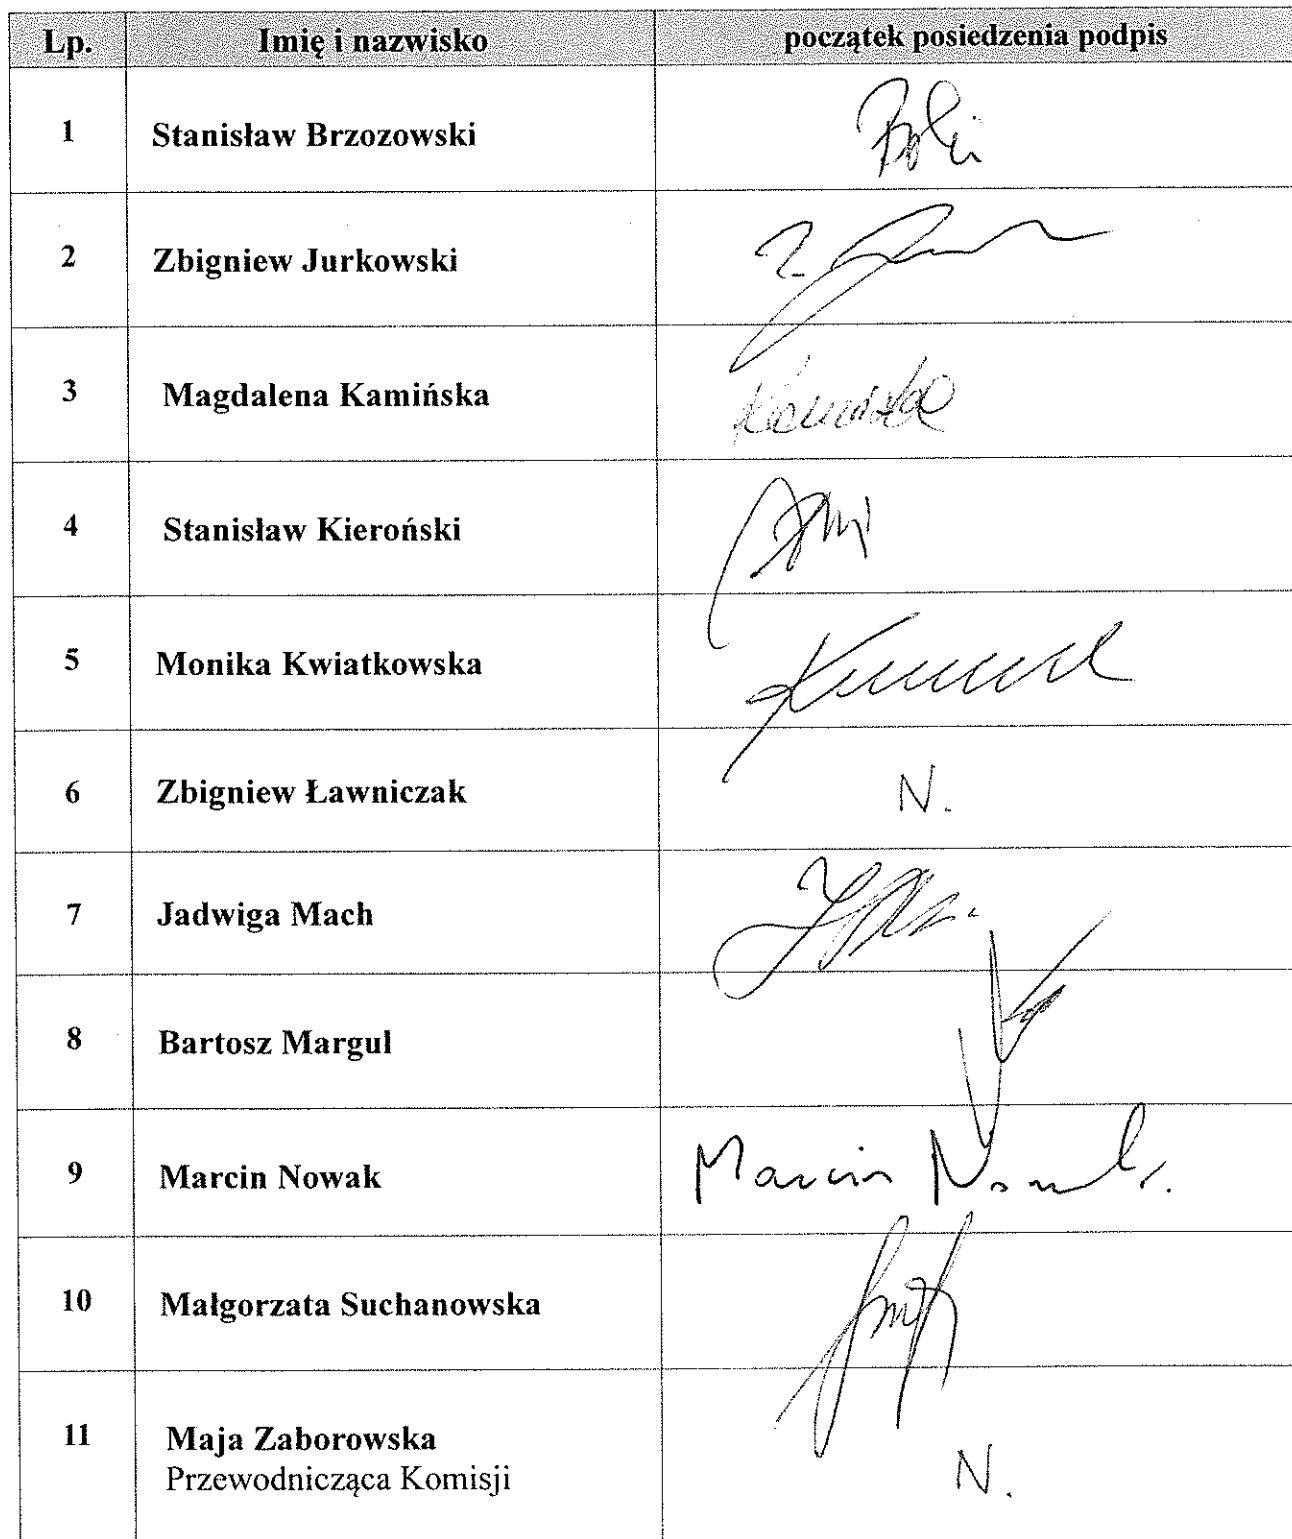 Lp. Imię i nazwisko początek posiedzenia podpis
1 Stanisław Brzozowski
2 Zbigniew Jurkowski
3 Magdalena Kamińska
4 Stanisław Kieroński
5 Monika Kwiatkowska
6 Zbigniew Ławniczak N.
7 Jadwiga Mach
8 Bartosz Margul
9 Marcin Nowak Marcin Nowak
10 Małgorzata Suchanowska
11 Maja Zaborowska
Przewodnicząca Komisji N.